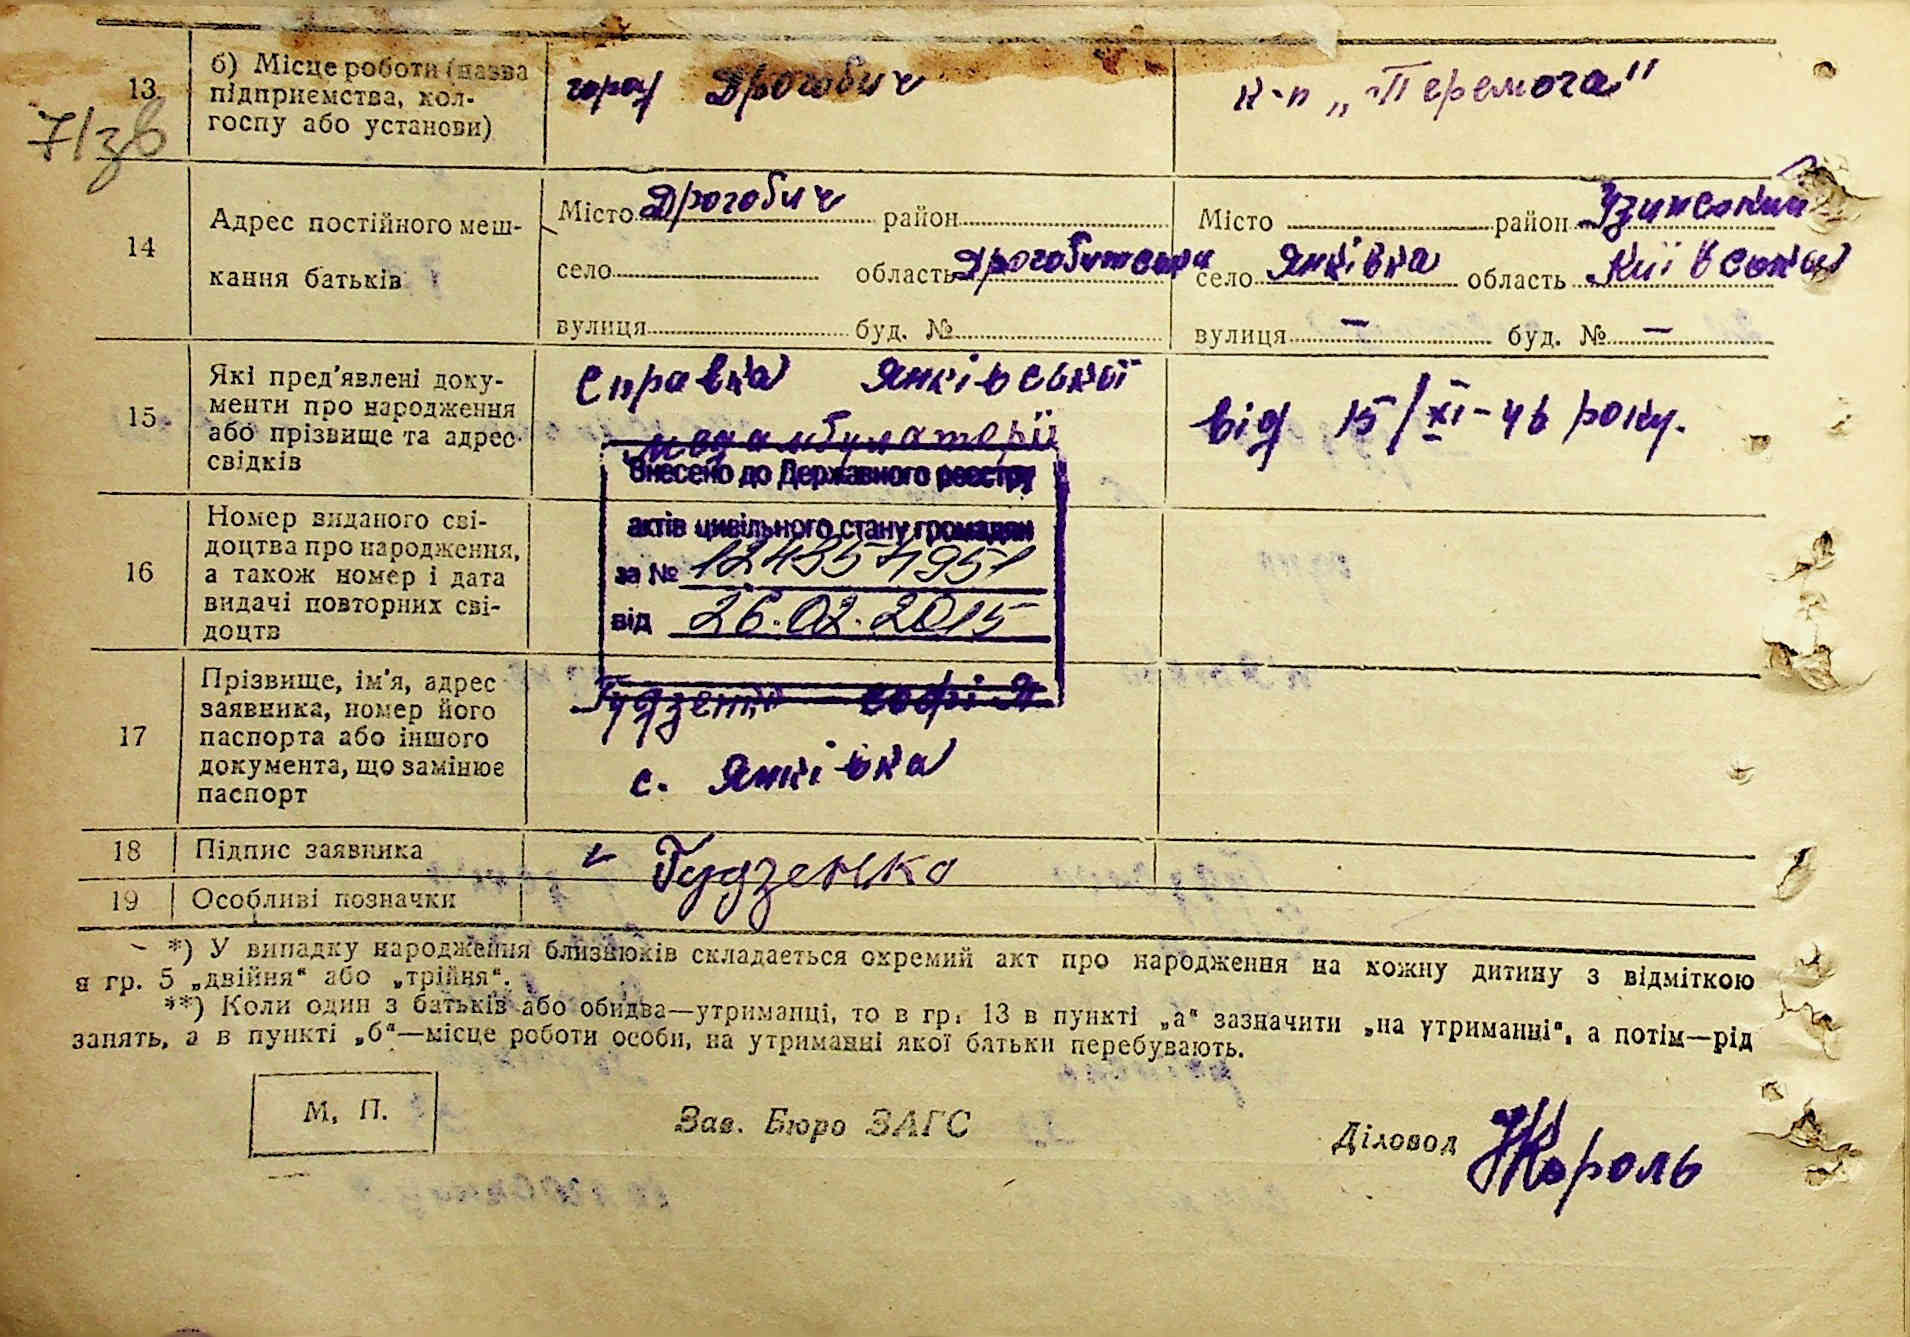 13
б) Місце роботи (назва
підприємства, кол-
госпу або установи)
город Дрогобич
к-п „Перемога"
7/зв
14
Адрес постійного меш-
кання батьків
Місто Дрогобич район
село область Дрогобитська
вулиця буд. №
Місто район Узинський
село Янківка область Київська
вулиця — буд. № —
15
Які пред'явлені доку-
менти про народження
або прізвище та адрес
свідків
Справка Янківської
медамбулаторії
від 15/XI-46 року.
16
Номер виданого сві-
доцтва про народження,
а також номер і дата
видачі повторних сві-
доцтв
Внесено до Державного реєстру
актів цивільного стану громадян
за №
від 26.02.2015
17
Прізвище, ім'я, адрес
заявника, номер його
паспорта або іншого
документа, що замінює
паспорт
Софія
с. Янківка
18
Підпис заявника
Гудзенко
19
Особливі позначки
*) У випадку народження близнюків складається окремий акт про народження на кожну дитину з відміткою
в гр. 5 „двійня“ або „трійня“.
**) Коли один з батьків або обидва—утриманці, то в гр. 13 в пункті „а“ зазначити „на утриманні“, а потім—рід
занять, а в пункті „б“—місце роботи особи, на утриманні якої батьки перебувають.
М. П.
Зав. Бюро ЗАГС
Діловод Король